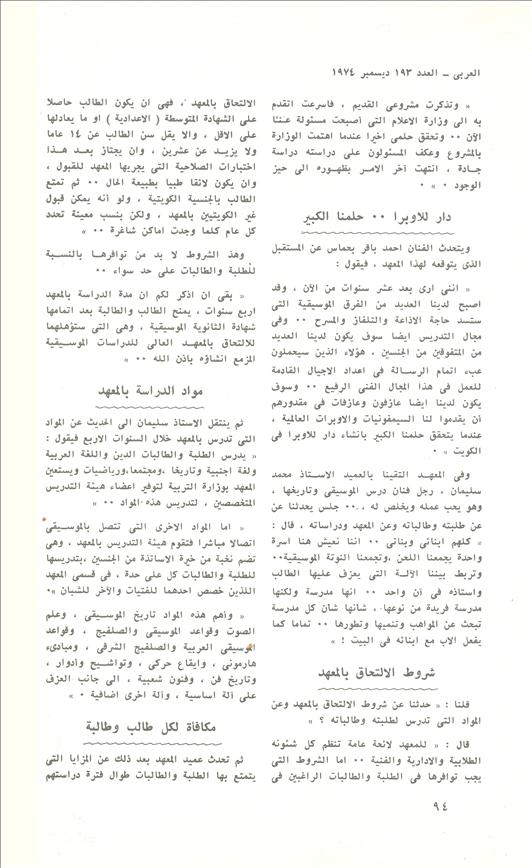 العربى – العدد ١٩٣ ديسمبر ١٩٧٤
« وتذكرت مشروعى القديم ، فاسرعت اتقدم
به الى وزارة الاعلام التى أصبحت مسئولة عنا
الآن ٠٠ وتحقق حلمى اخيرا عندما اهتمت الوزارة
بالمشروع وعكف المسئولون على دراسته دراسة
جادة ، انتهت آخر الامر بظهوره الى حيز
الوجود ٠ » ٠
دار للاوبرا ٠٠ حلمنا الكبير
ويتحدث الفنان احمد باقر بحماس عن المستقبل
الذى يتوقعه لهذا المعهد ، فيقول :
« اننى ارى بعد عشر سنوات من الآن ، وقد
اصبح لدينا العديد من الفرق الموسيقية التى
ستسد حاجة الاذاعة والتلفاز والمسرح ٠٠ وفى
مجال التدريس ايضا سوف يكون لدينا العديد
من المتفوقين من الجنسين ، هؤلاء الذين سيعملون
عبء اتمام الرسالة فى اعداد الاجيال القادمة
للعمل فى هذا المجال الفنى الرفيع ٠٠ وسوف
يكون لدينا ايضا عازفون وعازفات فى مقدورهم
أن يقدموا لنا السيمفونيات والاوبرات العالمية ،
عندما يتحقق حلمنا الكبير بانشاء دار للاوبرا فى
الكويت » ٠
وفى المعهد التقينا بالعميد الاستاذ محمد
سليمان ، رجل فنان درس الموسيقى وتاريخها ،
وهو يحب عمله ويخلص له ٠٠ جلس يحدثنا عن
عن طلبته وطالباته وعن المعهد ودراساته ، قال :
« كلهم ابنائى وبناتى ٠٠ اننا نعيش هنا اسرة
واحدة يجمعنا اللحن ،وتجمعنا النوتة الموسيقية٠٠
وتربط بيننا الآلة التى يعزف عليها الطالب
واستاذه فى آن واحد ٠٠ انها مدرسة ولكنها
مدرسة فريدة من نوعها ، شأنها شأن كل مدرسة
تبحث عن المواهب وتنميها وتطورها ٠٠ تماما كما
يفعل الاب مع ابنائه فى البيت ! »
شروط الالتحاق بالمعهد
قلنا : « حدثنا عن شروط الالتحاق بالمعهد وعن
المواد التى تدرس لطلبته وطالباته ؟ »
قال : « للمعهد لائحة عامة تنظم كل شئونه
الطلابية والادارية والفنية ٠٠ اما الشروط التى
يجب توافرها فى الطلبة والطالبات الراغبين فى
الالتحاق بالمعهد ، فهى ان يكون الطالب حاصلا
على الشهادة المتوسطة ( الاعدادية ) او ما يعادلها
على الاقل ، والا يقل سن الطالب عن ١٤ عاما
ولا يزيد عن عشرين ، وان يجتاز بعد هذا
اختبارات الصلاحية التى يجريها المعهد للقبول ،
وان يكون لائقا طبيا بطبيعة الحال ٠٠ ثم تمتع
الطالب بالجنسية الكويتية ، ولو أنه يمكن قبول
غير الكويتيين بالمعهد ، ولكن بنسب معينة تحدد
كل عام كلما وجدت اماكن شاغرة ٠٠ »
وهذ الشروط لا بد من توافرها بالنسبة
للطلبة والطالبات على حد سواء ٠٠
« بقى ان اذكر لكم ان مدة الدراسة بالمعهد
اربع سنوات ، يمنح الطالب والطالبة بعد اتمامها
شهادة الثانوية الموسيقية ، وهى التى ستؤهلهما
للالتحاق بالمعهد العالى للدراسات الموسيقية
المزمع انشاؤه باذن الله ٠٠ »
مواد الدراسة بالمعهد
ثم ينتقل الاستاذ سليمان الى الحديث عن المواد
التى تدرس بالمعهد خلال السنوات الاربع فيقول :
« يدرس الطلبة والطالبات الدين واللغة العربية
ولغة اجنبية وتاريخا ،ومجتمعا،ورياضيات ويستعين
المعهد بوزارة التربية لتوفير اعضاء هيئة التدريس
المتخصصين ، لتدريس هذه المواد ٠٠ »
« اما المواد الاخرى التى تتصل بالموسيقى
اتصالا مباشرا فتقوم هيئة التدريس بالمعهد ، وهى
تضم نخبة من خيرة الاساتذة من الجنسين ،بتدريسها
للطلبة والطالبات كل على حدة ، فى قسمى المعهد
اللذين خصص احدهما للفتيات والآخر للشبان »٠
« وأهم هذه المواد تاريخ الموسيقى ، وعلم
الصوت وقواعد الموسيقى والصلفيج ، وقواعد
الموسيقى العربية والصلفيج الشرقى ، ومبادىء
هارمونى ، وايقاع حركى ، وتواشيح وأدوار ،
وتاريخ فن ، وفنون شعبية ، الى جانب العزف
على آلة اساسية ، وآلة اخرى اضافية ٠ »
مكافاة لكل طالب وطالبة
ثم تحدث عميد المعهد بعد ذلك عن المزايا التى
يتمتع بها الطلبة والطالبات طوال فترة دراستهم
٩٤